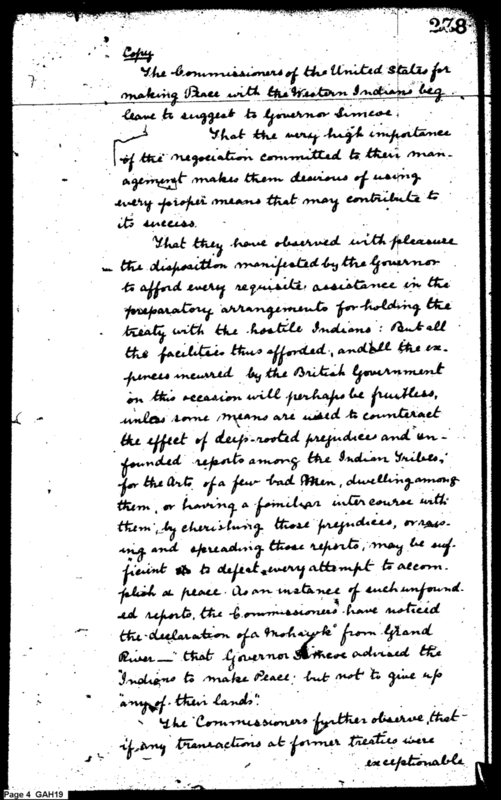 278
Copy
The Commissioners of the United States for
making Peace with the Western Indians beg
leave to suggest to Governor Simcoe,
That the very high importance
of the negociation committed to their man-
agement makes them desirous of using
every proper means that may contribute to
its success.
That they have observed with pleasure
the disposition manifested by the Governor
to afford every requisite assistance in the
preparatory arrangements for holding the
treaty with the hostile Indians: But all
the facilities thus afforded, and all the ex-
pences incurred by the British Government
on this occasion will perhaps be fruitless,
unless some means are used to counteract
the effect of deep-rooted prejudices and un-
founded reports among the Indian Tribes;
for the Arts, of a few bad Men, dwelling among
them, or having a familiar intercourse with
them, by cherishing those prejudices, or rais-
ing and spreading those reports, may be suf-
ficient to defeat every attempt to accom-
plish a peace. As an instance of such unfound-
ed reports, the Commissioners have noticed
the declaration of a Mohawk from Grand
River — "that Governor Simcoe advised the
"Indians to make Peace; but not to give up
"any of their lands".
The Commissioners further observe, that
if any transactions at former treaties were
exceptionable
Page 4 GAH19